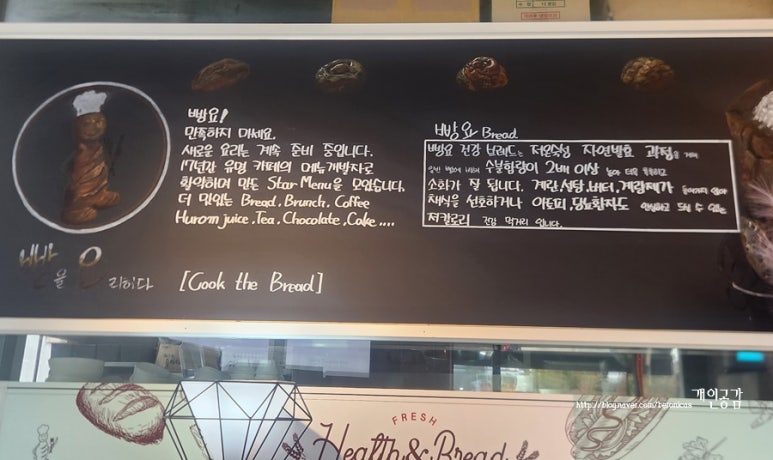 빵요!
만족하지 마세요.
새로운 요리는 계속 준비 중입니다.
17년간 유명 카페의 메뉴개발자로
활약하며 만든 Star Menu을 모았습니다.
더 맛있는 Bread, Brunch, Coffee
Hurom juice, Tea, Chocolate, Cake ....
빵을 요리하다
[Cook the Bread]
빵요 Bread
빵요 건강 브레드는 저온숙성 자연발효 과정을 거쳐
일반 빵에 비해 수분함량이 2배 이상 높아 더욱 촉촉하고
소화가 잘 됩니다. 계란, 설탕, 버터, 개량제가 들어가지 않아
채식을 선호하거나 아토피, 당뇨환자도 안심하고 드실 수 있는
저칼로리 건강 먹거리 입니다.
FRESH
Health & Bread
개인공감